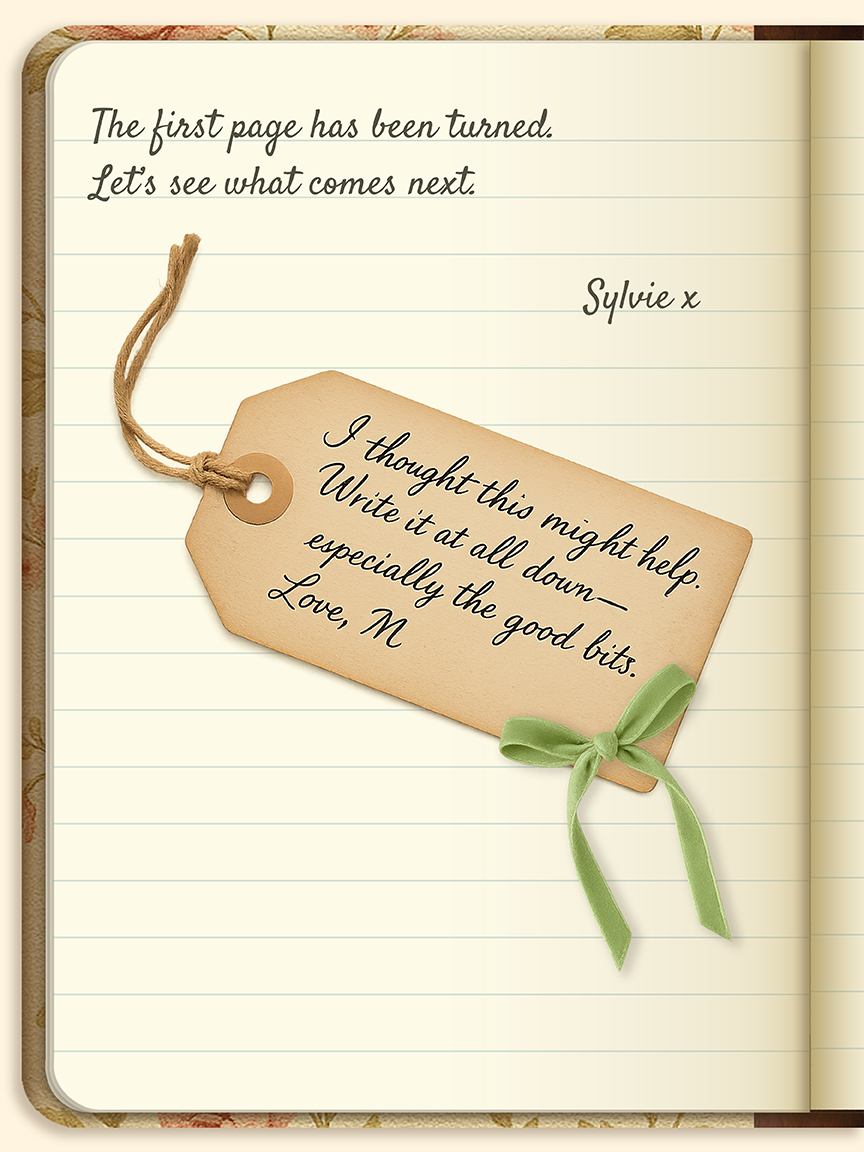 The first page has been turned.
Let's see what comes next.
Sylvie x
I thought this might help.
Write it at all down—
especially the good bits.
Love, M